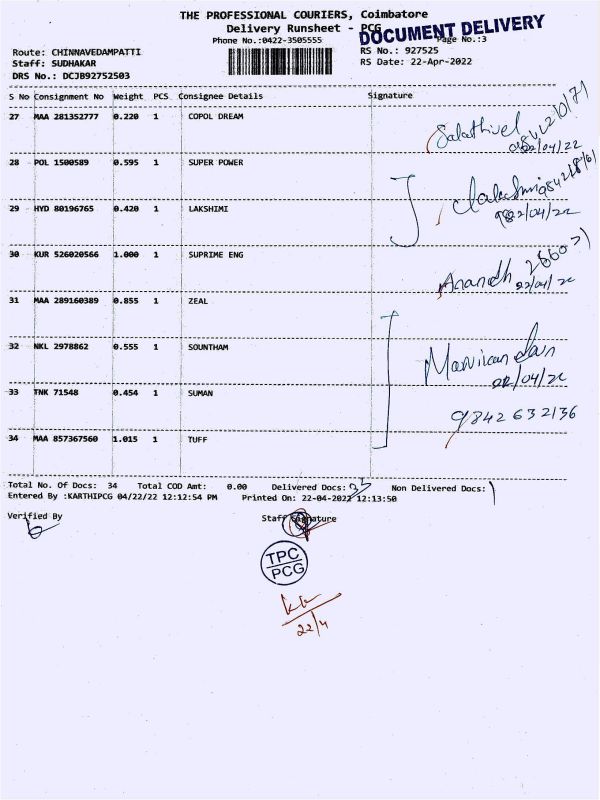 THE PROFESSIONAL COURIERS, Coimbatore
Delivery Runsheet - PCG
DOCUMENT DELIVERY
Phone No.:0422-3505555
Page No.:3
Route: CHINNAVEDAMPATTI
RS No.: 927525
Staff: SUDHAKAR
RS Date: 22-Apr-2022
DRS No.: DCJB92752503
S No Consignment No Weight PCS Consignee Details Signature
27 MAA 281352777 0.220 1 COPOL DREAM
22/04/22
28 POL 1500589 0.595 1 SUPER POWER
29 HYD 80196765 0.420 1 LAKSHIMI
22/04/22
30 KUR 526020566 1.000 1 SUPRIME ENG
Ananth
22/04/22
31 MAA 289160389 0.855 1 ZEAL
32 NKL 2978862 0.555 1 SOUNTHAM
22/04/22
33 TNK 71548 0.454 1 SUMAN
9842632136
34 MAA 857367560 1.015 1 TUFF
Total No. Of Docs: 34 Total COD Amt: 0.00 Delivered Docs: Non Delivered Docs: 1
Entered By :KARTHIPCG 04/22/22 12:12:54 PM Printed On: 22-04-2022 12:13:50
Verified By
Staff Signature
TPC
PCG
22/4